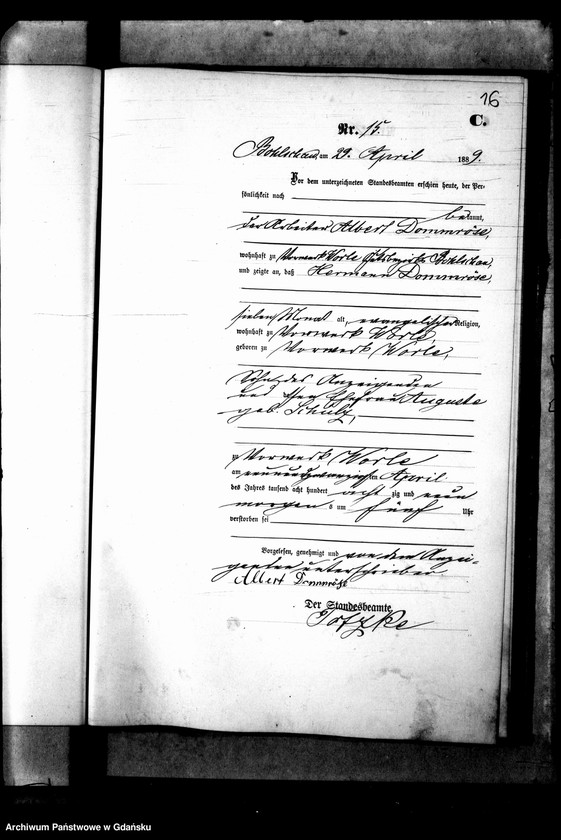 16
C.
Nr. 15.
Bohlschau, am 29. April 1889.
Vor dem unterzeichneten Standesbeamten erschien heute, der Per-
sönlichkeit nach
bekannt,
der Arbeiter Albert Dommröse,
wohnhaft zu Vorwerk Worle Gutsbezirk Bohlschau,
und zeigte an, daß Hermann Dommröse,
sieben Monat alt, evangelischer Religion,
wohnhaft zu Vorwerk Worle,
geboren zu Vorwerk Worle,
Sohn des Anzeigenden
und Ehefrau Auguste
geb. Schulz,
zu Vorwerk Worle
am neunundzwanzigsten April
des Jahres tausend acht hundert acht zig und neun
morgens um fünf Uhr
verstorben sei
Vorgelesen, genehmigt und von dem Anzei-
genden unterschrieben.
Albert Dommröse
Der Standesbeamte.
Archiwum Państwowe w Gdańsku